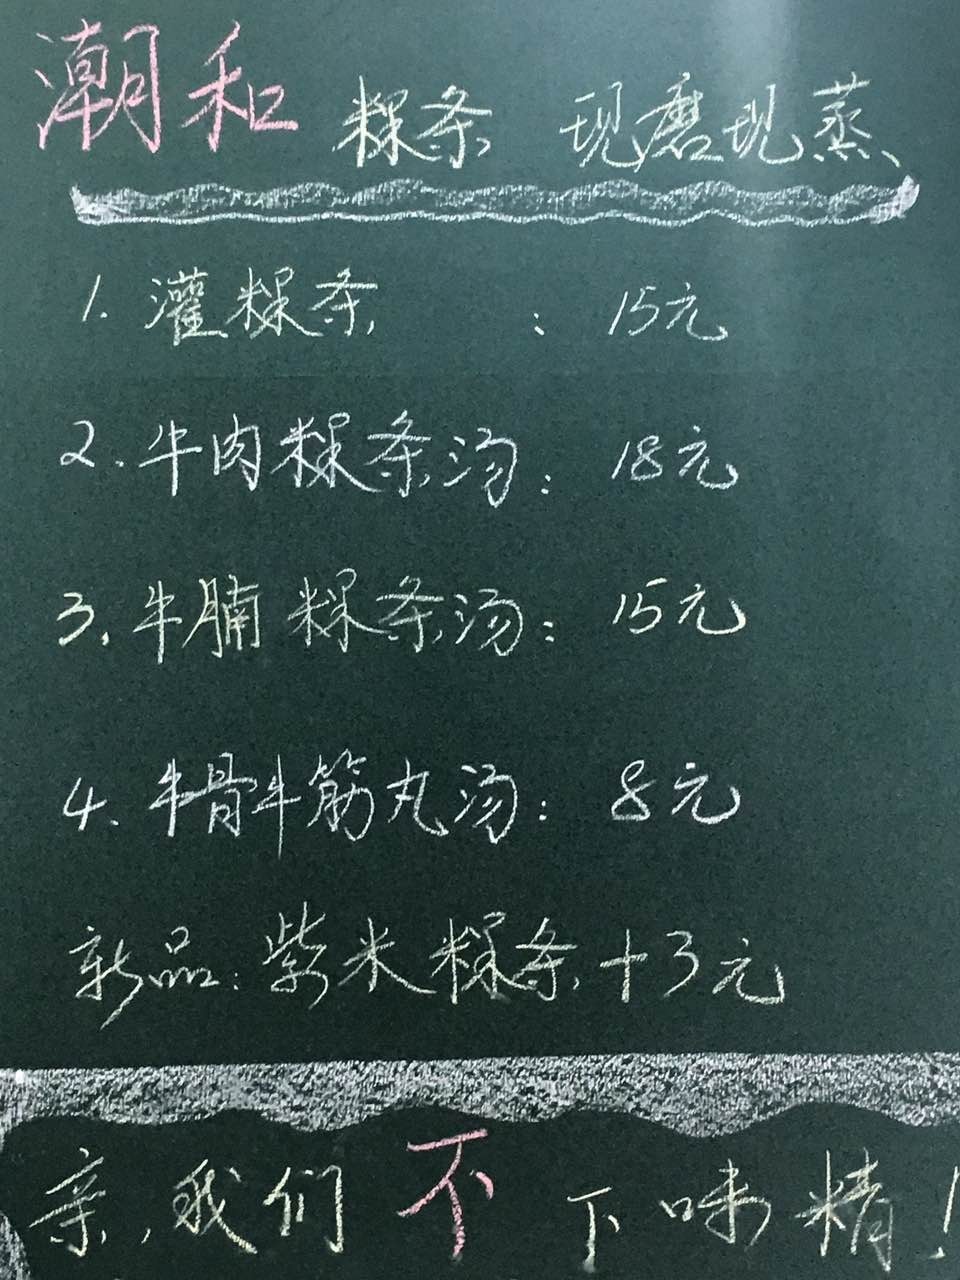 潮和 粿条 现磨现蒸
1. 灌粿条 : 15元
2. 牛肉粿条汤: 18元
3. 牛腩粿条汤: 15元
4. 牛骨牛筋丸汤: 8元
新品: 紫米粿条+3元
亲, 我们不下味精!